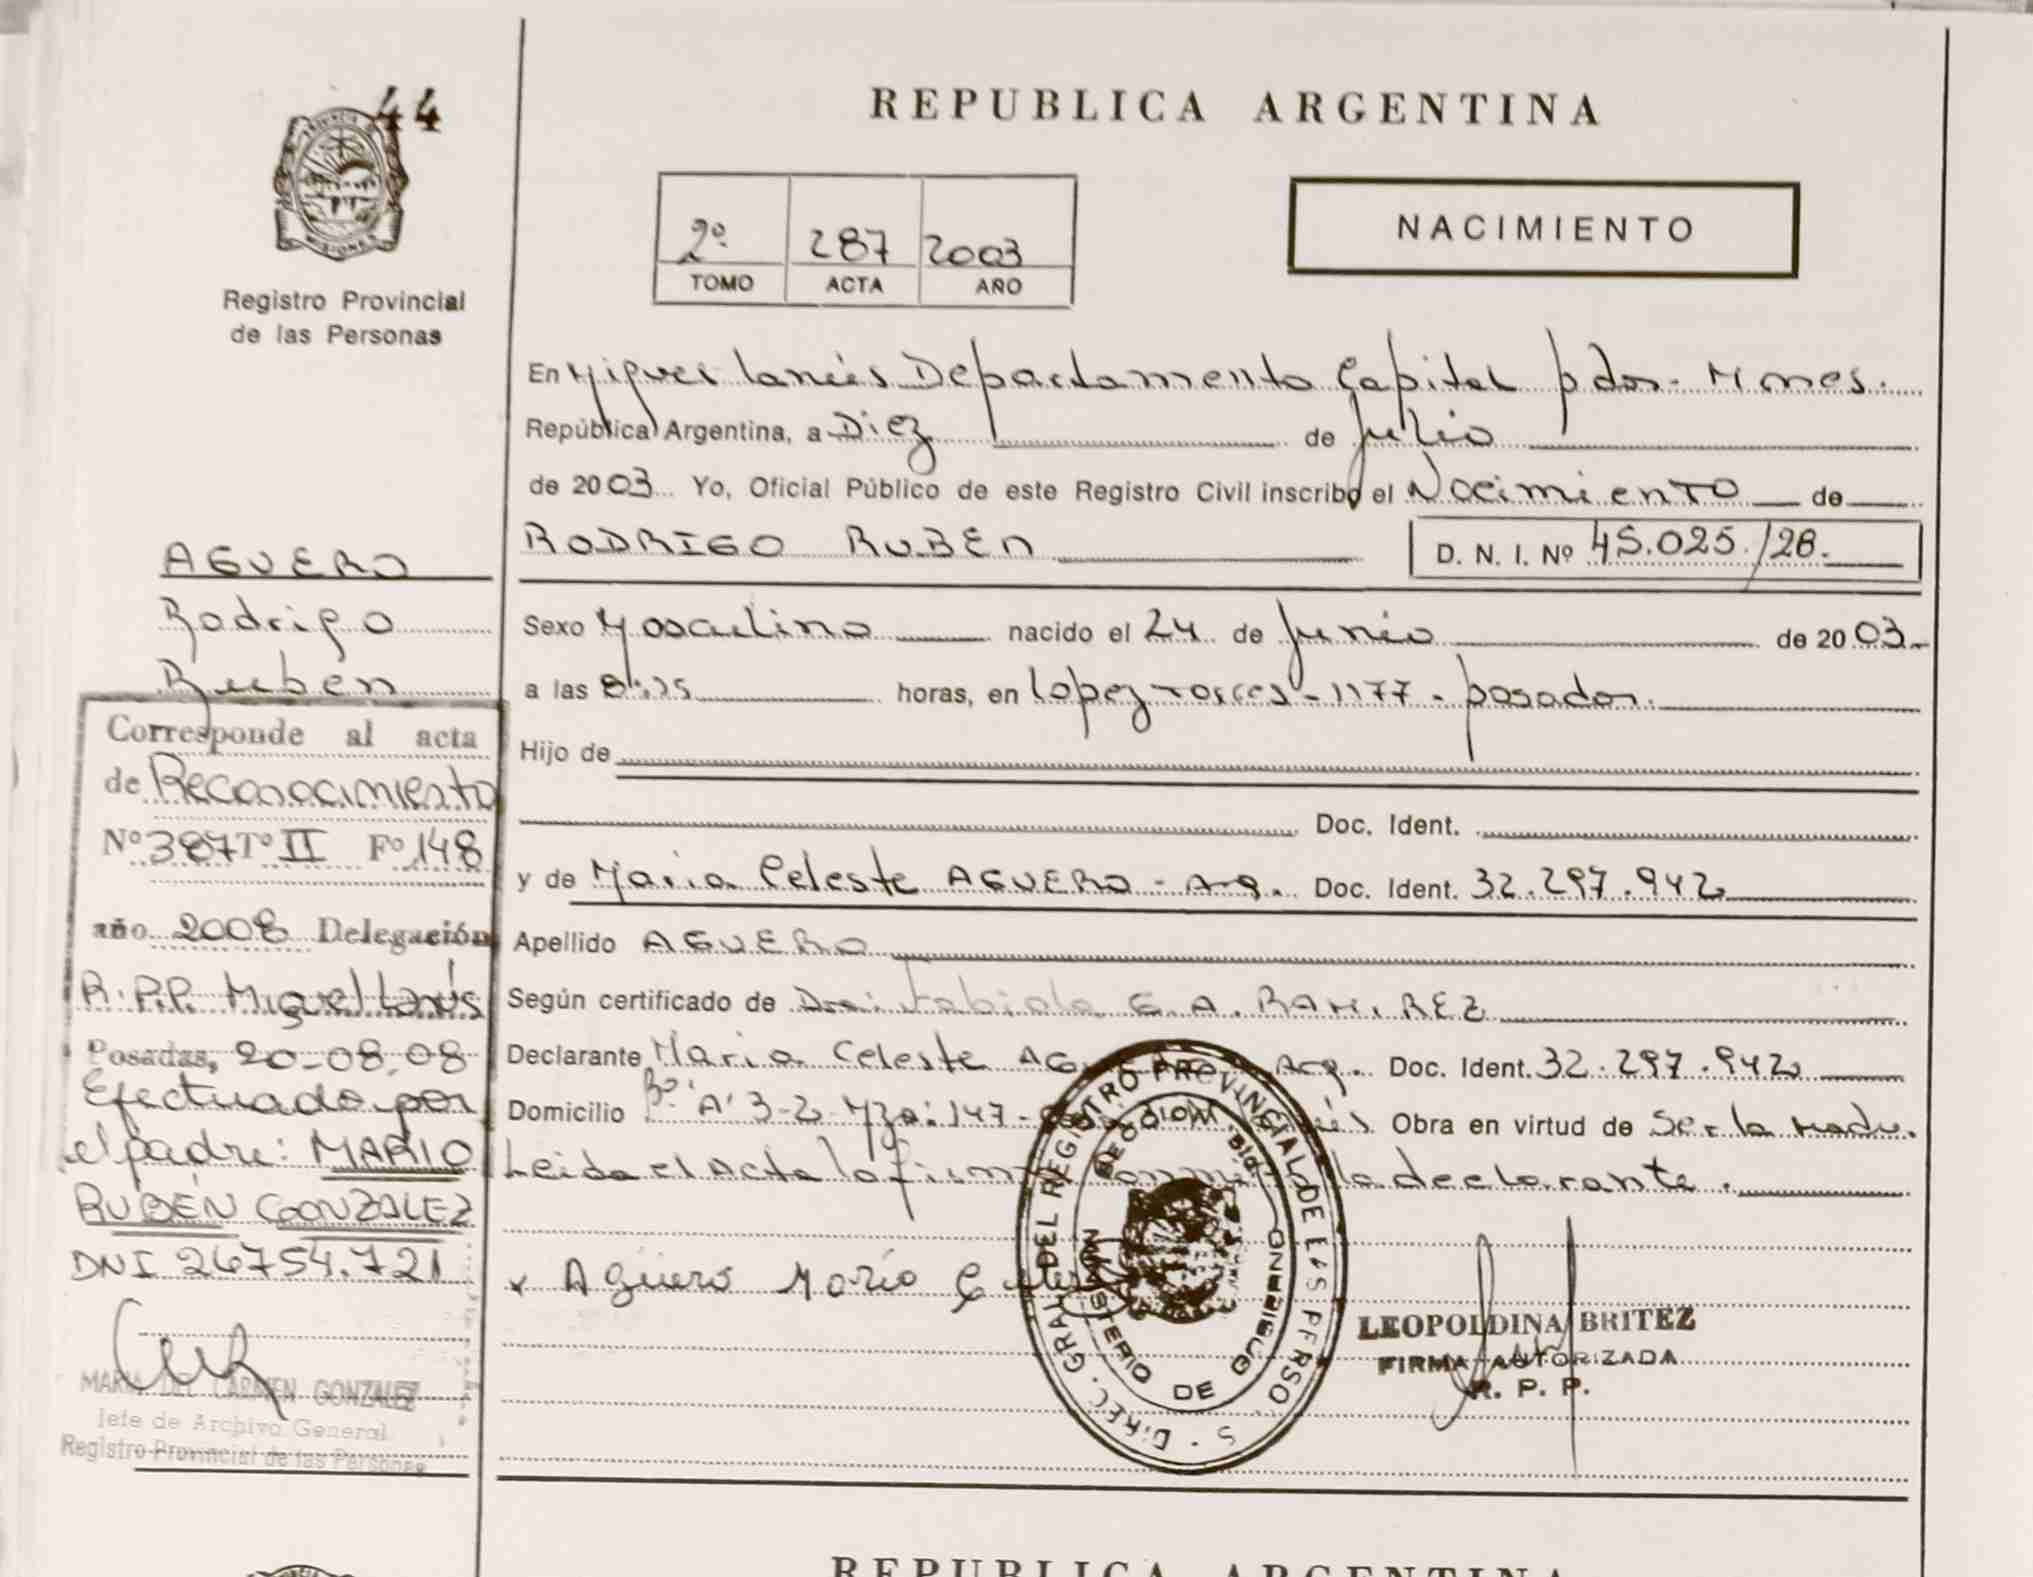 44
PROVINCIA DE
MISIONES
Registro Provincial
de las Personas
REPUBLICA ARGENTINA
2º 287 2003
TOMO ACTA AÑO
NACIMIENTO
En Miguel Lanús Departamento Capital pdas. Mnes.
República Argentina, a Diez de Julio
de 2003 Yo, Oficial Público de este Registro Civil inscribo el Nacimiento de
RODRIGO RUBEN D. N. I. Nº 45.025.128.
Sexo Masculino nacido el 24 de Junio de 2003.
a las horas, en Lopez Torres - 1177 - posadas.
Hijo de
Doc. Ident.
y de Maria Celeste AGUERO - Arg. Doc. Ident. 32.297.942
Apellido AGUERO
Según certificado de Dra. Fabiola E. A. RAMIREZ
Declarante Maria Celeste Arg. Doc. Ident. 32.297.942
Domicilio Bº "A" 3-2- Mza: 147 - Obra en virtud de ser la madre.
Leida el Acta la firma la declarante.
x Agüero María
DIREC. GRAL. DEL REGISTRO PROVINCIAL DE LAS PERSO
MINISTERIO DE GOBIERNO
LEOPOLDINA BRITEZ
FIRMA AUTORIZADA
R. P. P.
AGUERO
Rodrigo
Ruben
Corresponde al acta
de Reconocimiento
Nº 387 Tº II Fº 148
año 2008 Delegación
R.P.P. Miguel Lanús
Posadas, 20-08-08
Efectuado por
el padre: MARIO
RUBÉN GONZALEZ
DNI 26754.721
MARIA DEL CARMEN GONZALEZ
Jefe de Archivo General
Registro Provincial de las Personas
REPUBLICA ARGENTINA